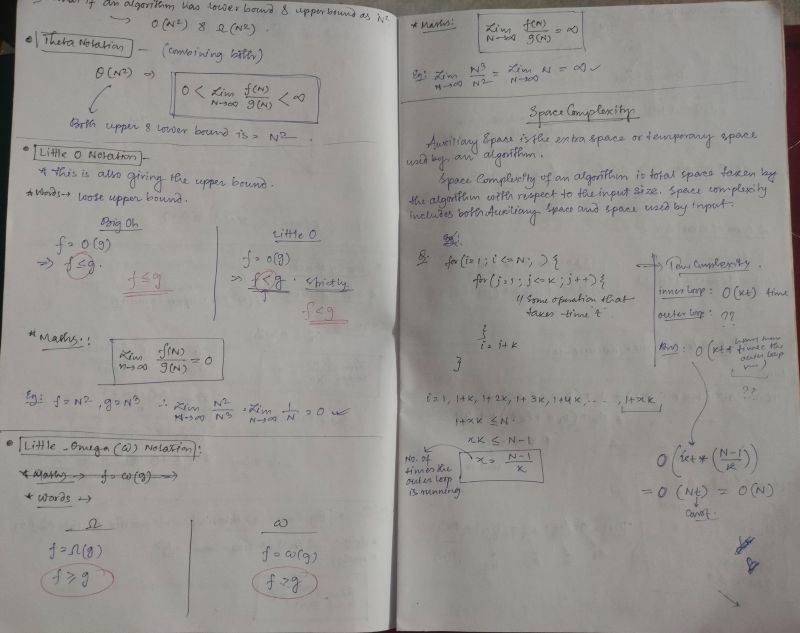 if an algorithm has lower bound & upper bound as N²
→ O(N²) & Ω(N²).
Theta Notation - (combining both)
θ(N²) ⇒ 0 < Lim N→∞ f(N)/g(N) < ∞
Both upper & lower bound is = N².
Little O Notation -
* This is also giving the upper bound.
* Words → loose upper bound.
Big Oh
f = O(g)
⇒ f ≤ g.
f ≤ g
Little O
f = o(g)
⇒ f < g. strictly
f < g
* Maths:
Lim n→∞ f(N)/g(N) = 0
Eg: f = N², g = N³ ∴ Lim N→∞ N²/N³ = Lim N→∞ 1/N = 0
Little - Omega (ω) Notation:
* Maths → f = ω(g) →
* Words →
Ω
f = Ω(g)
f ≥ g
ω
f = ω(g)
f > g
* Maths:
Lim N→∞ f(N)/g(N) = ∞
Eg: Lim N→∞ N³/N² = Lim N→∞ N = ∞
Space Complexity
Auxiliary Space is the extra space or temporary space
used by an algorithm.
Space Complexity of an algorithm is total space taken by
the algorithm with respect to the input size. Space complexity
includes both Auxiliary Space and space used by input.
Eg:
Q. for(i=1; i<=N; ) {
for(j=1; j<=k; j++) {
// Some operation that
takes time t
}
i = i+k
}
→ Time Complexity.
inner loop: O(kt) time
outer loop: ??
Ans: O(kt * times the
outer loop
??
i = 1, 1+k, 1+2k, 1+3k, 1+4k, ..... , 1+xk
1+xk ≤ N
xk ≤ N-1
x = N-1/k
No. of
times the
outer loop
is running
O(kt * (N-1/k))
= O(Nt) = O(N)
const.